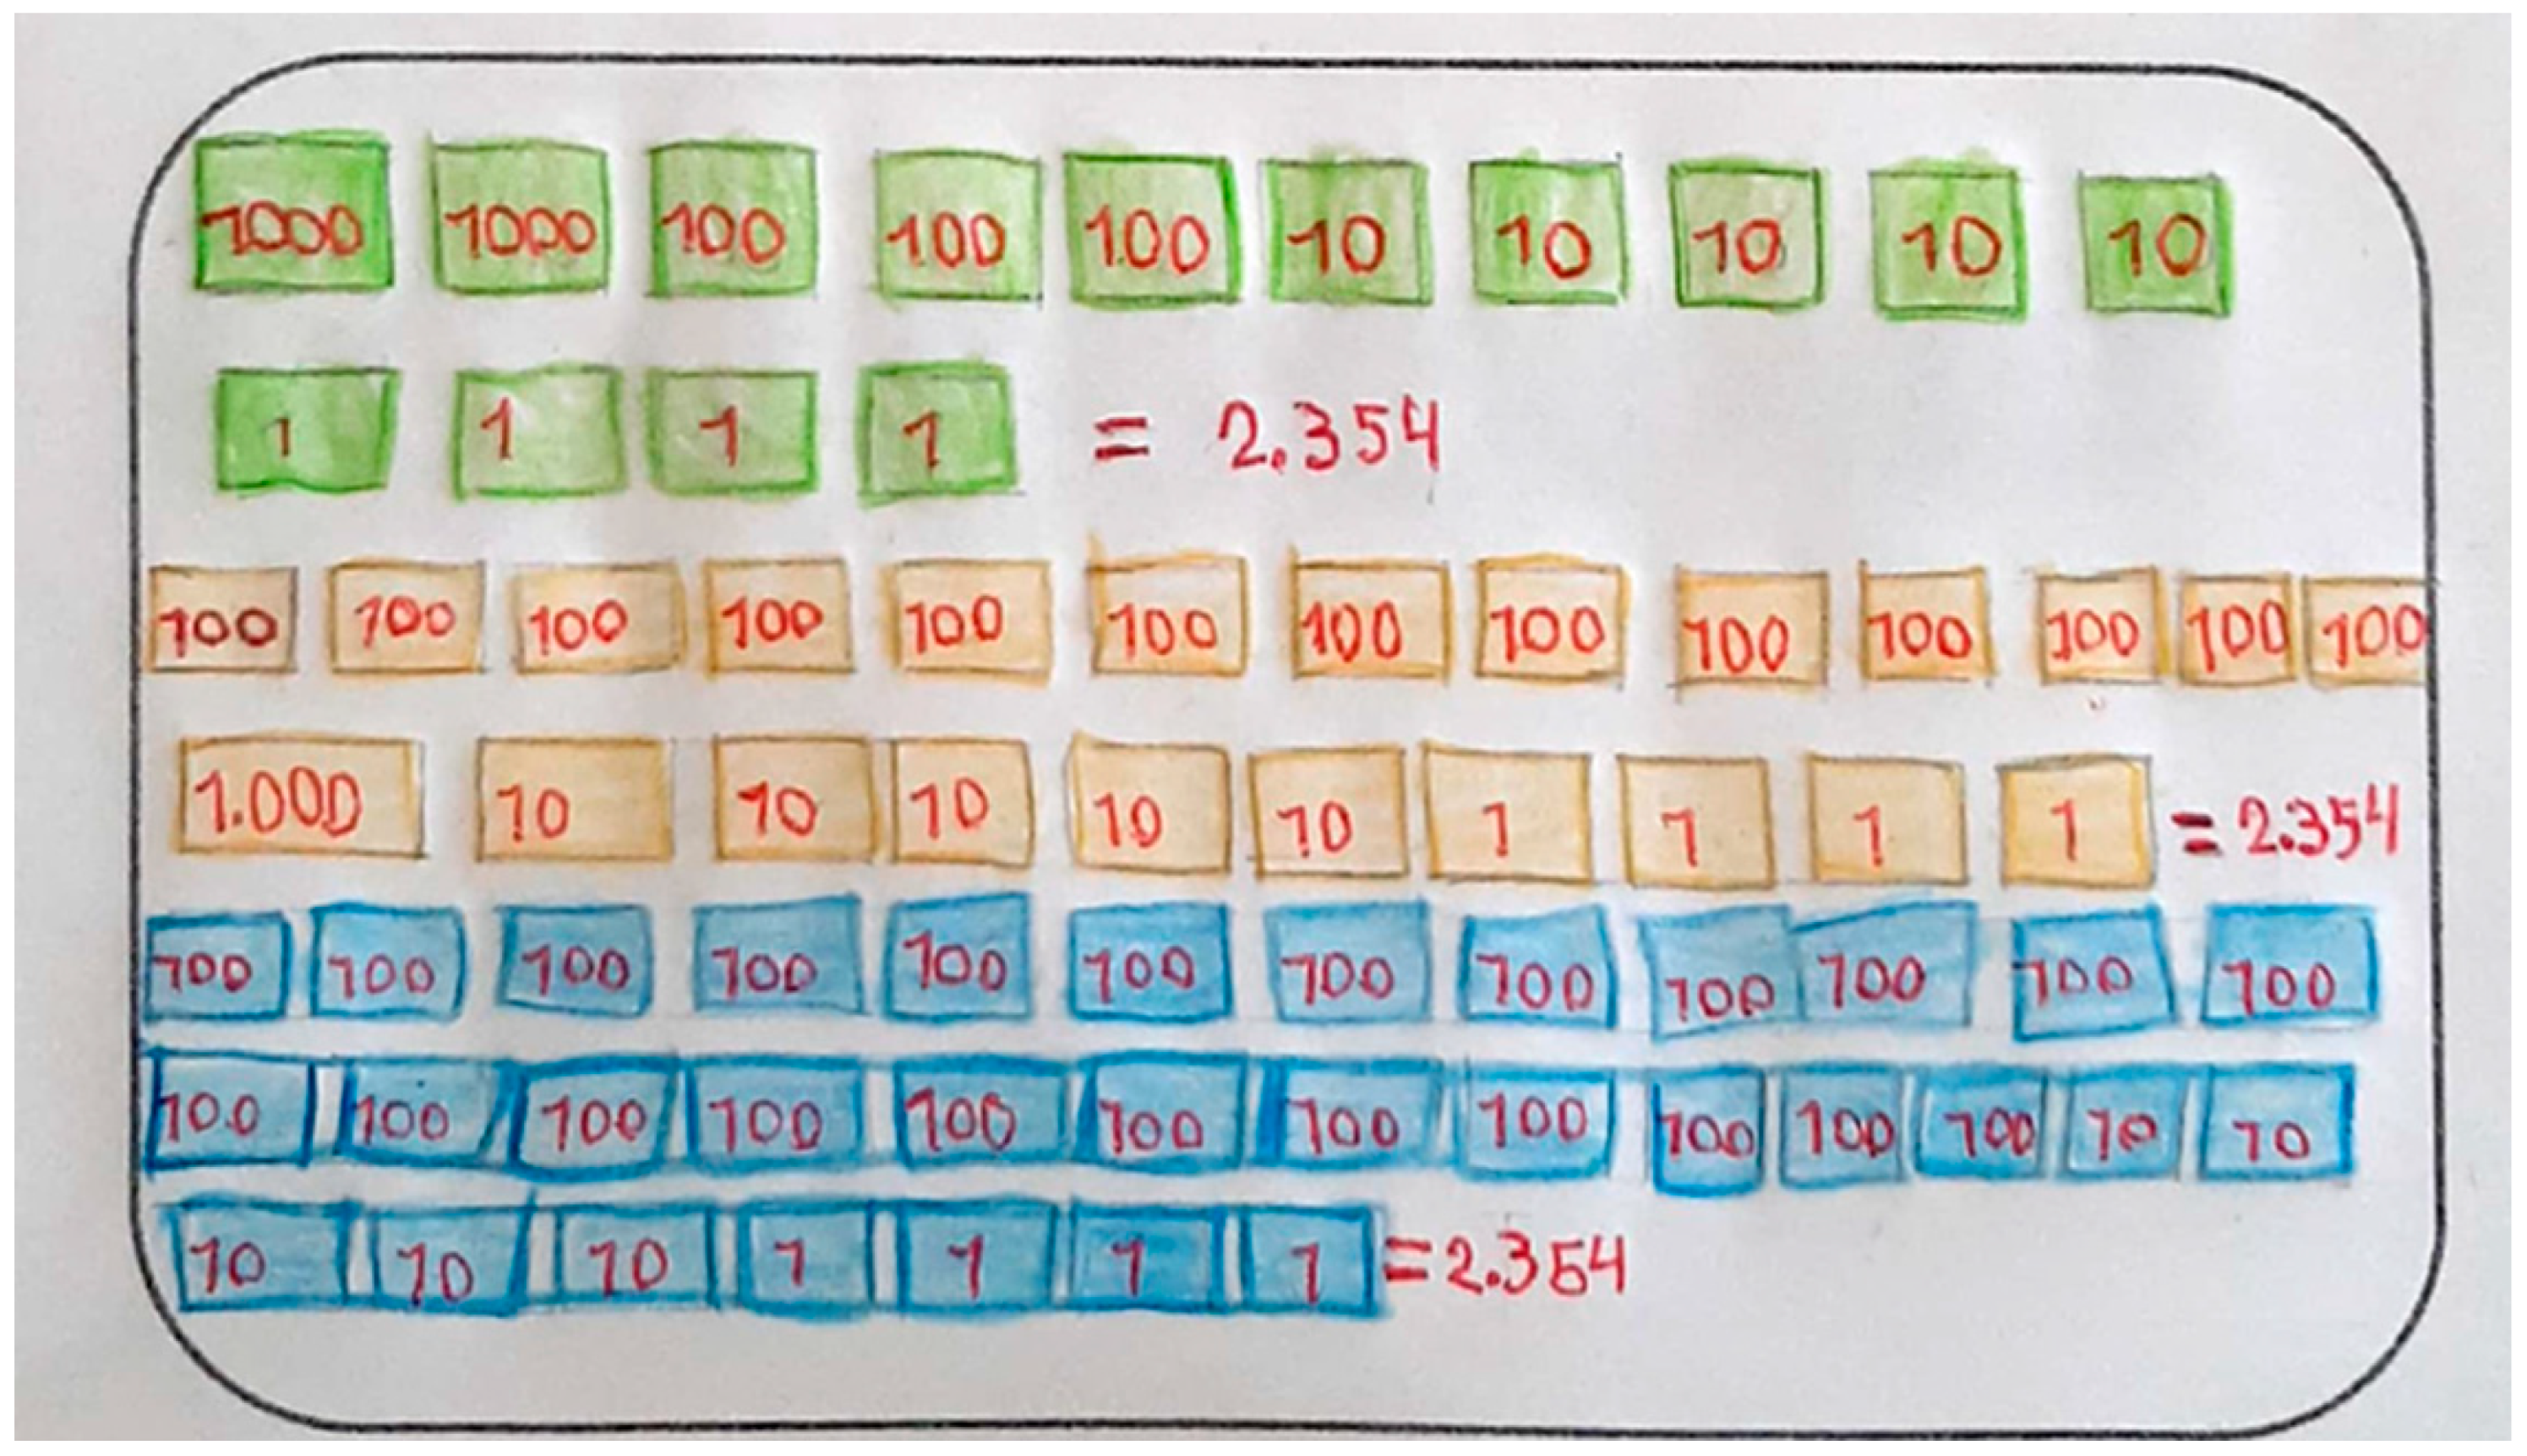 1000 1000 100 100 100 10 10 10 10 10
1 1 1 1 = 2.354
100 100 100 100 100 100 100 100 100 100 100 100 100
1.000 10 10 10 10 10 1 1 1 1 = 2.354
100 100 100 100 100 100 100 100 100 100 100 100
100 100 100 100 100 100 100 100 100 100 100 10 10
10 10 10 1 1 1 1 = 2.354